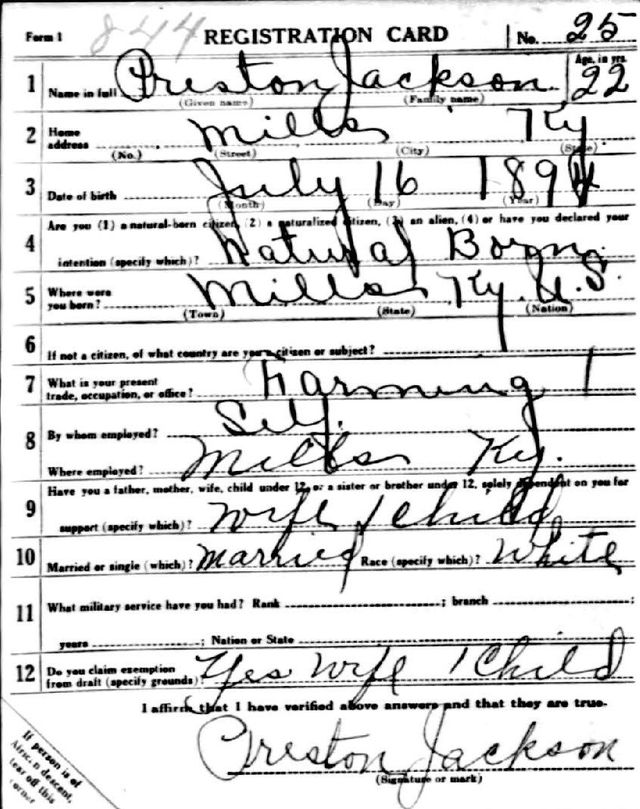 Form 1 844 REGISTRATION CARD No. 25
1 Name in full Preston Jackson Age, in yrs. 22
(Given name) (Family name)
2 Home address Mills Ky.
(No.) (Street) (City) (State)
3 Date of birth July 16 1894
(Month) (Day) (Year)
4 Are you (1) a natural-born citizen, (2) a naturalized citizen, (3) an alien, (4) or have you declared your
intention (specify which)? Natural Born.
5 Where were you born? Mills Ky. U.S.
(Town) (State) (Nation)
6 If not a citizen, of what country are you a citizen or subject?
7 What is your present trade, occupation, or office? Farming
8 By whom employed? Self.
Where employed? Mills Ky.
9 Have you a father, mother, wife, child under 12, or a sister or brother under 12, solely dependent on you for
support (specify which)? Wife 1 child
10 Married or single (which)? Married Race (specify which)? White
11 What military service have you had? Rank ; branch ;
years ; Nation or State
12 Do you claim exemption from draft (specify grounds)? Yes Wife 1 Child
I affirm that I have verified above answers and that they are true.
Preston Jackson
(Signature or mark)
If person is of
African descent,
tear off this
corner